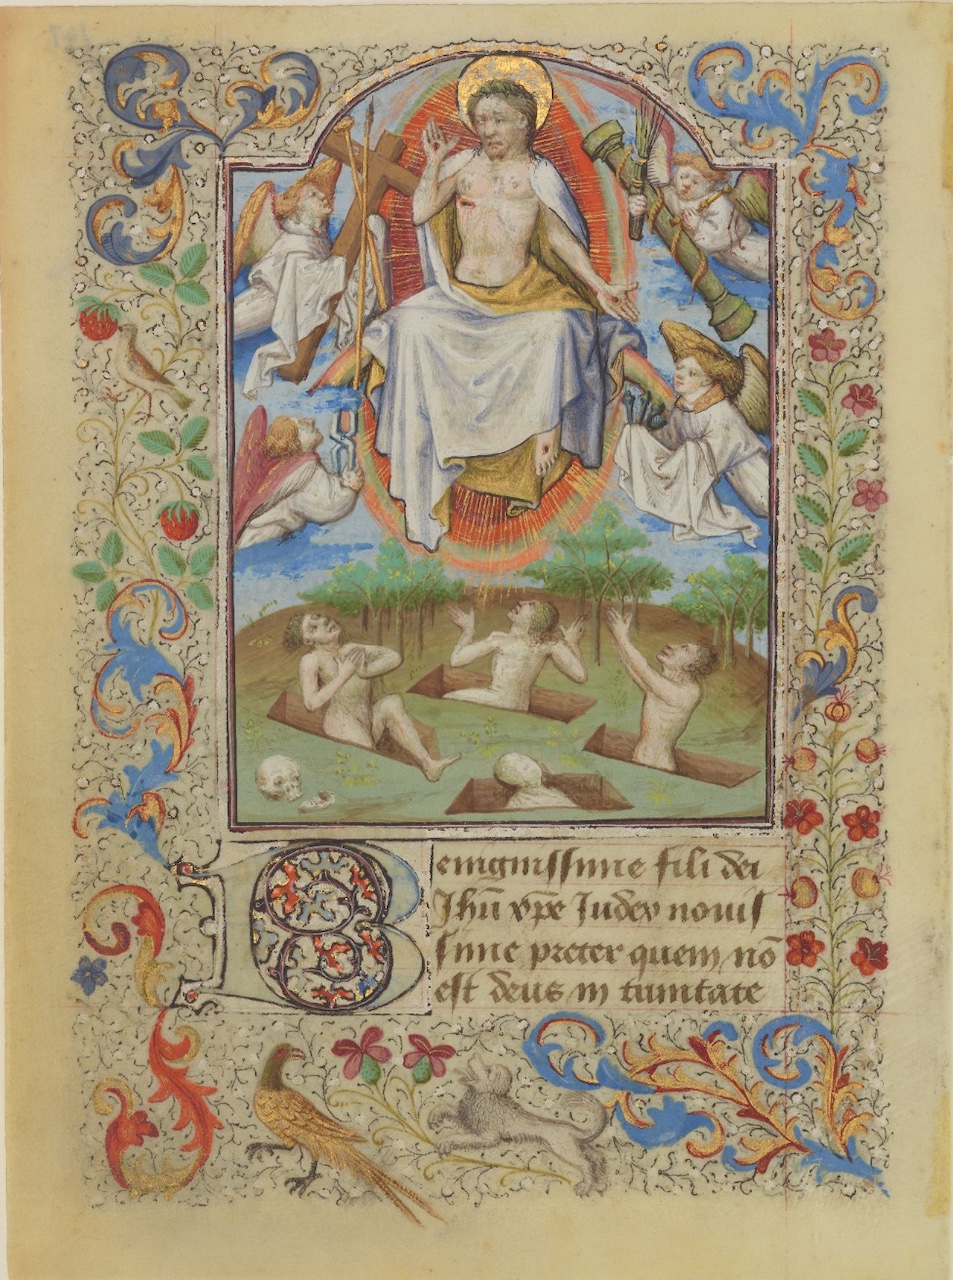 Benignissime fili dei
Jhū xp̄e Iudex nouis
sime preter quem nō
est deus in trinitate